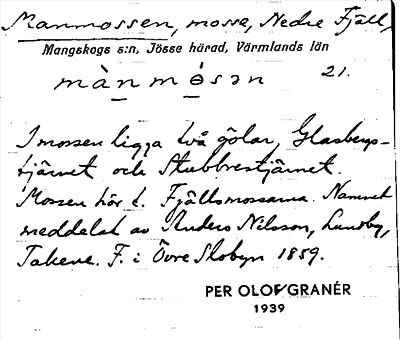 Manmossen, mosse, Nedre Fjäll,
Mangskogs s:n, Jösse härad, Värmlands län
mànmósən 21.
I mossen ligga två gölar, Glasbergs-
tjärnet och Stubbrestjärnet.
Mossen hör t. Fjällsmossarna. Namnet
meddelat av Anders Nilsson, Lundby,
Takene. F. i Övre Slobyn 1859.
PER OLOF GRANÉR
1939